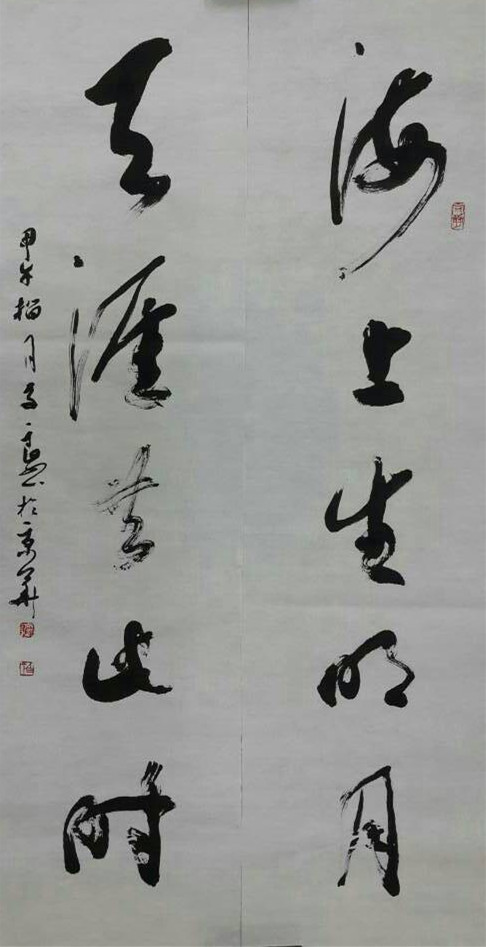 海上生明月
天涯共此时
甲午榴月 於京華